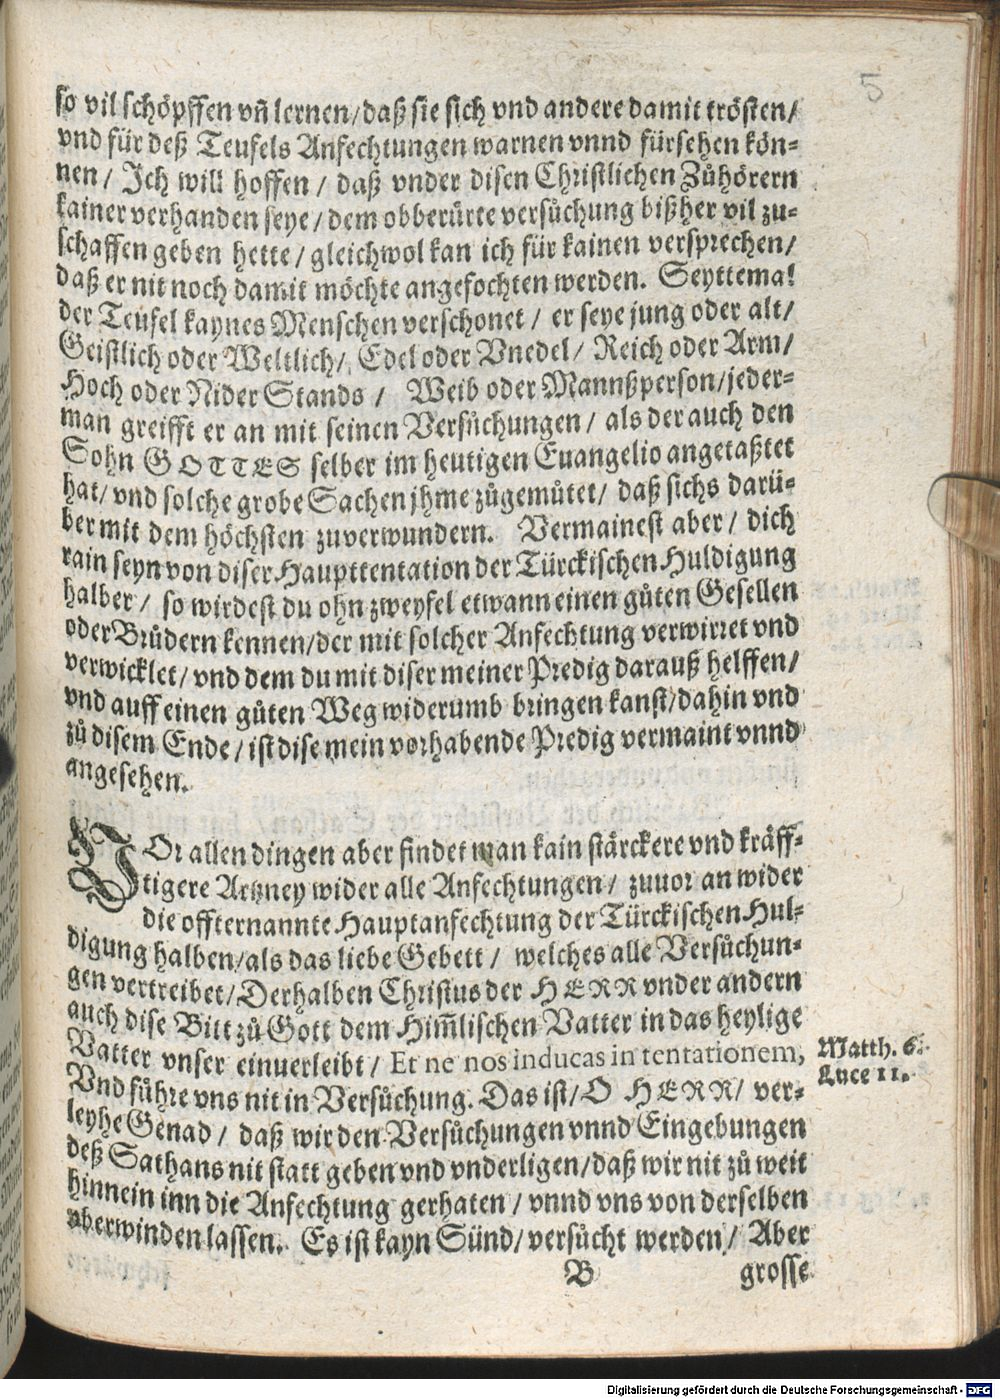 5
so vil schöpffen vñ lernen/ daß sie sich vnd andere damit trösten/
vnd für deß Teufels Anfechtungen warnen vnnd fürsehen kön-
nen/ Ich will hoffen/ daß vnder disen Christlichen Zůhörern
kainer verhanden seye/ dem obberürte versůchung bißher vil zu-
schaffen geben hette/ gleichwol kan ich für kainen versprechen/
daß er nit noch damit möchte angefochten werden. Seyttemal
der Teüfel kaynes Menschen verschonet/ er seye jung oder alt/
Geistlich oder Weltlich/ Edel oder Vnedel/ Reich oder Arm/
Hoch oder Nider Stands/ Weib oder Mannßperson/ jeder-
man greifft er an mit seinen Versůchungen/ als der auch den
Sohn GOTTES selber im heutigen Euangelio angetaßtet
hat/ vnd solche grobe Sachen jhme zůgemůtet/ daß sichs darü-
ber mit dem höchsten zuverwundern. Vermainest aber/ dich
rain seyn von diser Haupttentation der Türckischen Huldigung
halber/ so wirdest du ohn zweyfel etwann einen gůten Gesellen
oder Brůdern kennen/ der mit solcher Anfechtung verwirret vnd
verwicklet/ vnd dem du mit diser meiner Predig darauß helffen/
vnd auff einen gůten Weg widerumb bringen kanst/ dahin vnd
zů disem Ende/ ist dise mein vorhabende Predig vermaint vnnd
angesehen.
VOr allen dingen aber findet man kain stärckere vnd kräff-
tigere Artzney wider alle Anfechtungen/ zuuor an wider
die offternannte Hauptanfechtung der Türckischen Hul-
digung halben/ als das liebe Gebett/ welches alle Versůchun-
gen vertreibet/ Derhalben Christus der HERR vnder andern
auch dise Bitt zů Gott dem Him̃lischen Vatter in das heylige
Vatter vnser einuerleibt/ Et ne nos inducas in tentationem,
Vnd führe vns nit in Versůchung. Das ist/ O HERR/ ver-
leyhe Genad/ daß wir den Versůchungen vnnd Eingebungen
deß Sathans nit statt geben vnd vnderligen/ daß wir nit zů weit
hinnein inn die Anfechtung gerhaten/ vnnd vns von derselben
vberwinden lassen. Es ist kayn Sünd/ versůcht werden/ Aber
B grosse
Matth. 6.
Luce 11.
Digitalisierung gefördert durch die Deutsche Forschungsgemeinschaft - DFG